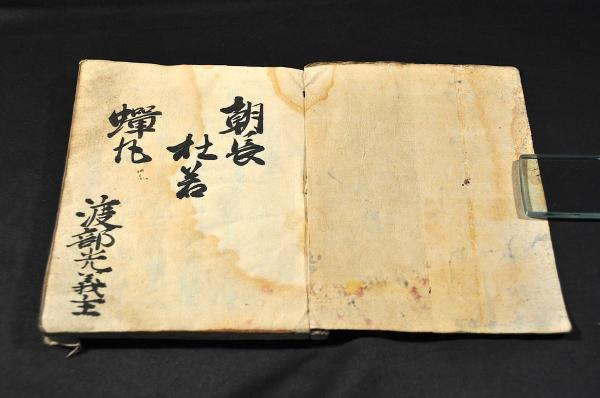 朝長
杜若
蟬丸
渡部光義主